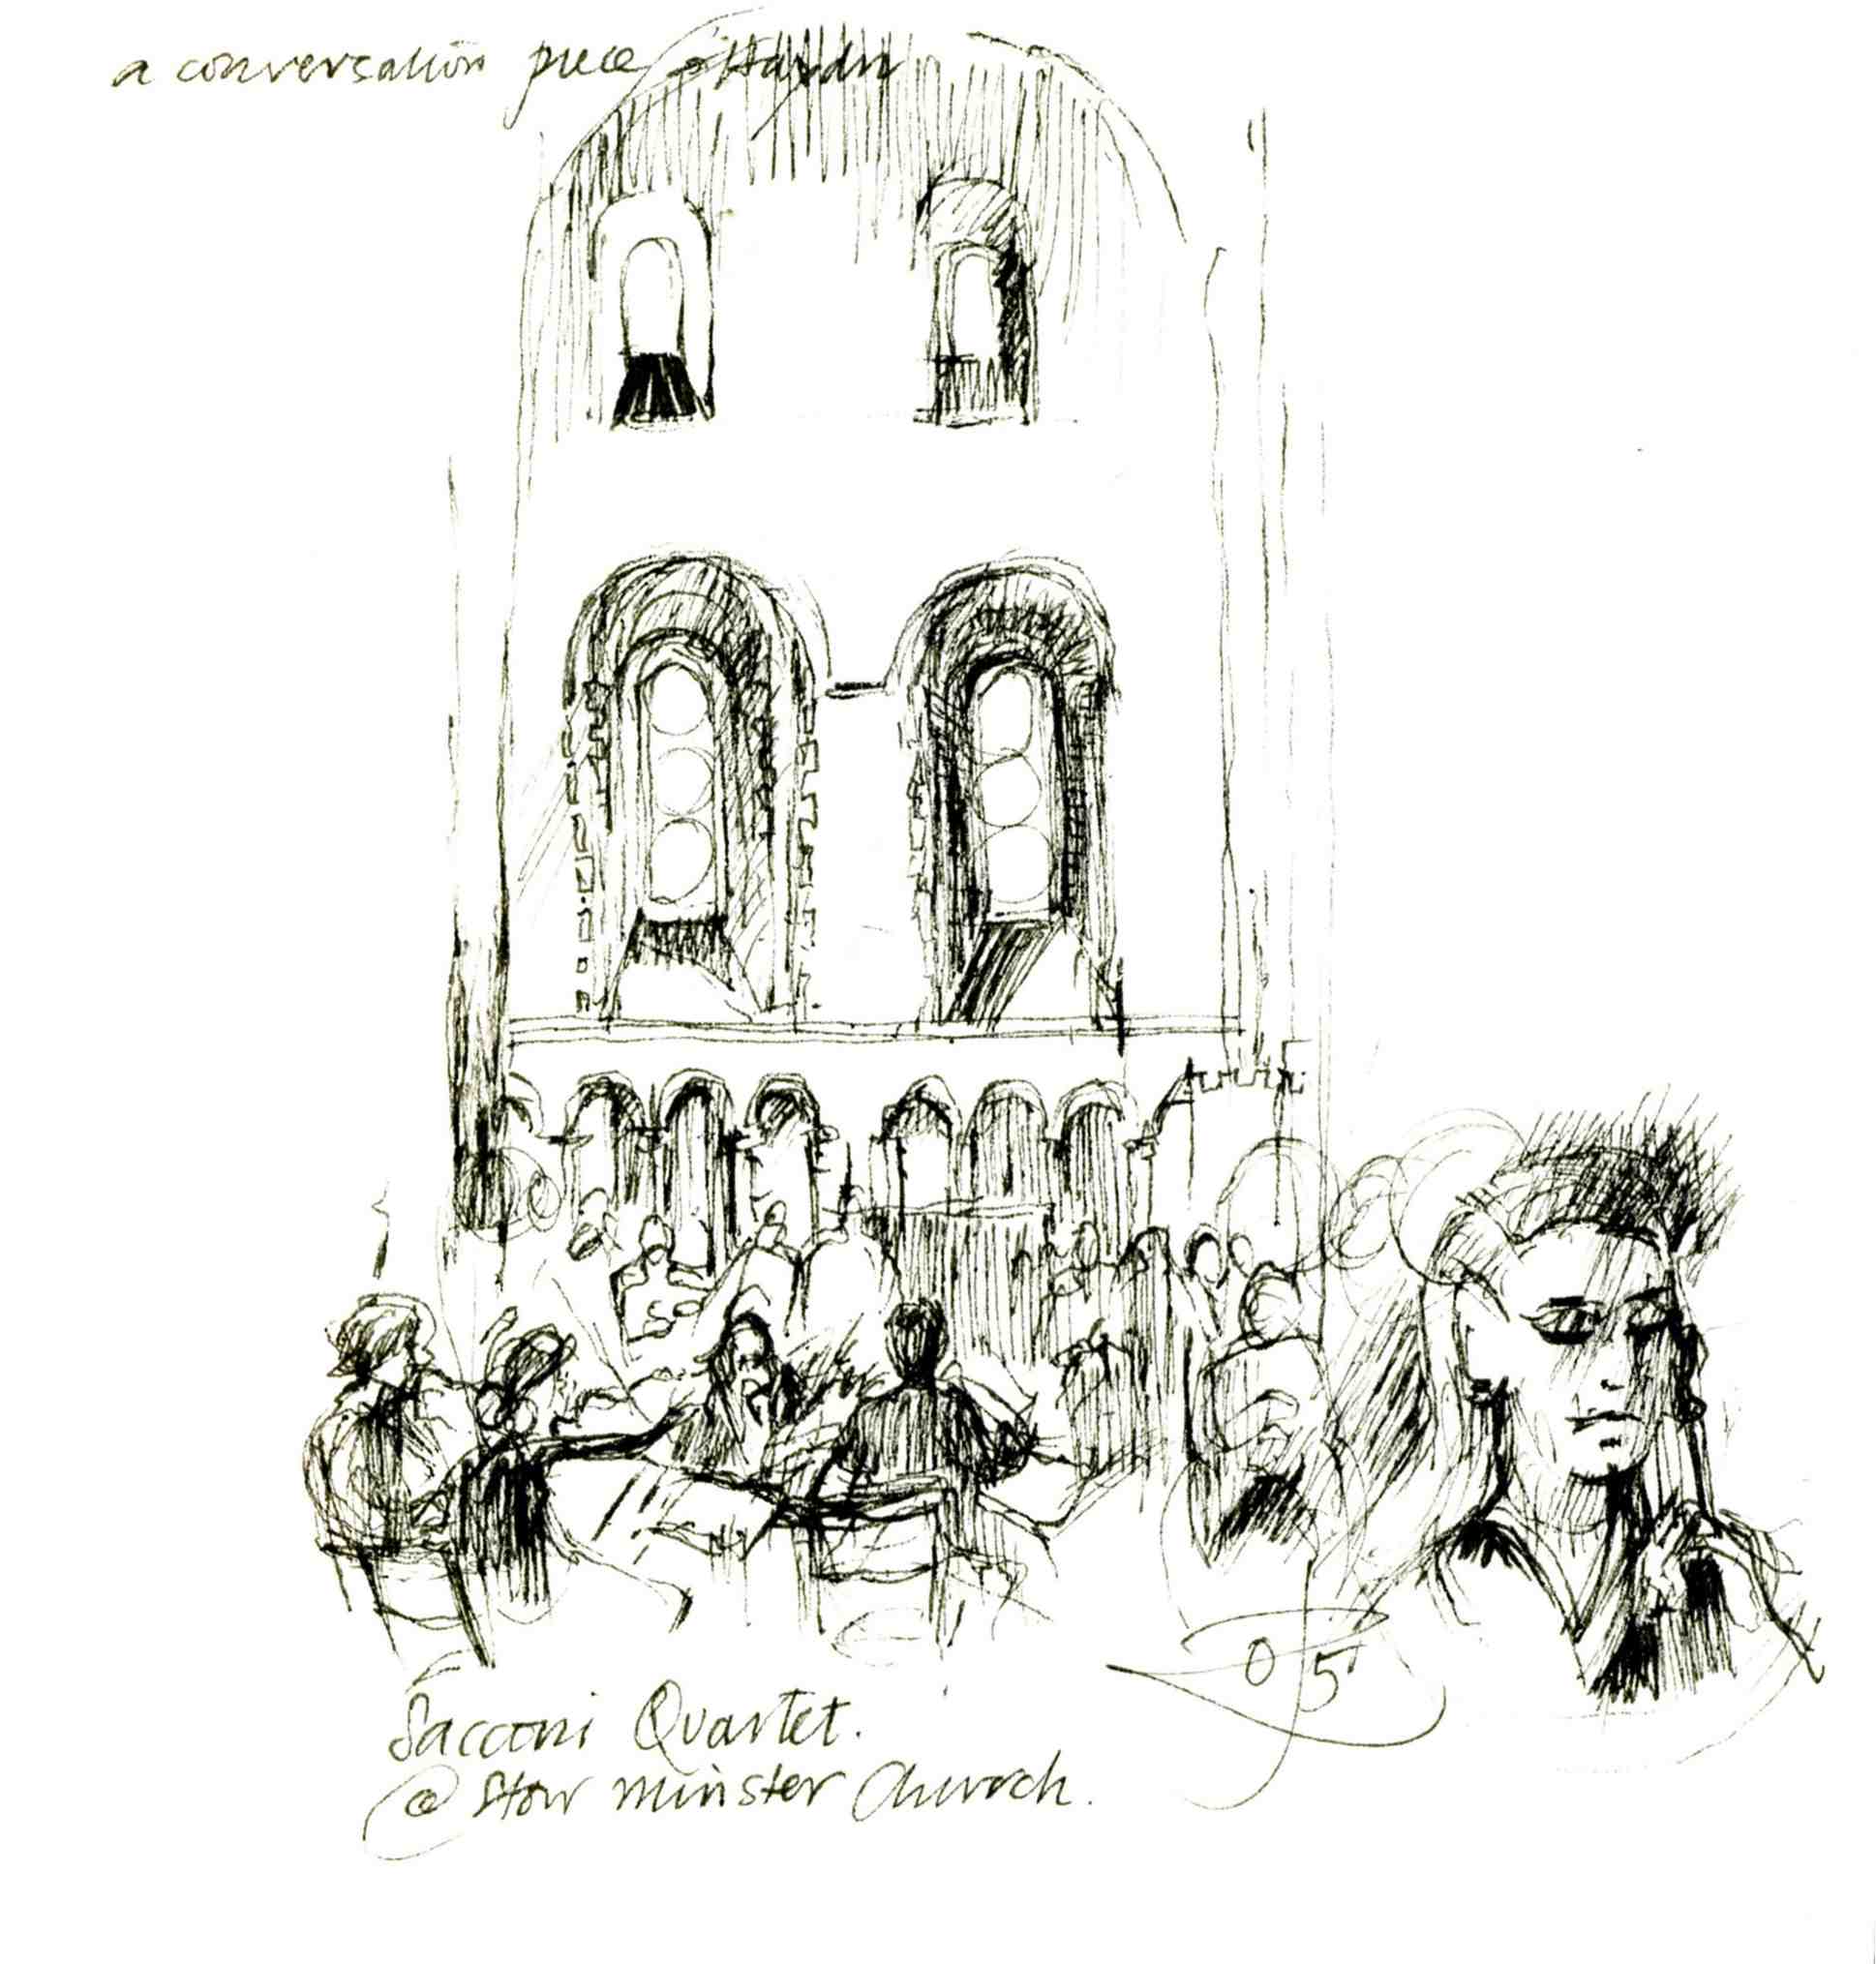 a conversation piece - Haydn
05
Sacconi Quartet.
@ Stow Minster Church.